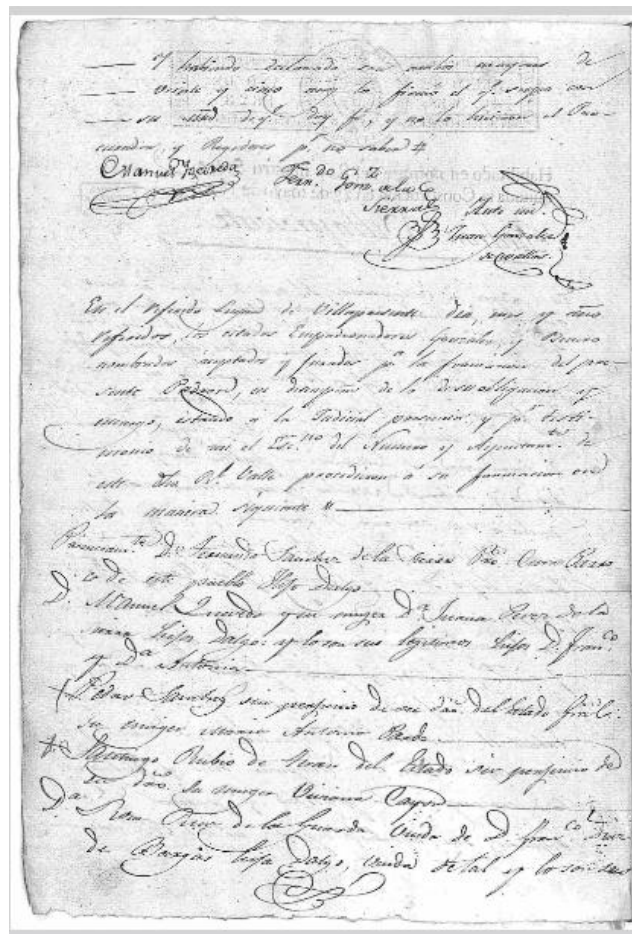 Y habiendo declarado ser ambos mayores de
veinte y cinco años lo firmó el q. supo con
su mrd. de q. doy fé, y no lo hicieron el Pro-
curador, y Regidores p.r no saber #
Manuel Quebedo Fern.do Gonzalez
Ante mi.
Juan Gonzalez
de Cevallos.
En el referido Lugar de Villapresente dia, mes, y año
referidos, los citados Empadronadores Gonzalez, y
nombrados aceptados y jurados p.a la formacion del pre-
sente Padron, en desempeño de la de su obligacion y
encargo, estando a la Judicial presencia, y p.r testi-
monio de mi el Es.no del Numero y Ayuntam.to de
este Valle procedieron á su formacion en
la manera siguiente
D.n Fernando Sanchez de la Cura
de este pueblo Hijo dalgo
D. Manuel Quevedo y su muger D.a Juana Perez de la
Sierra hijos dalgo: y lo son sus legitimos hijos D. Fran.co
y D.a Antonia
Sanchez sin perjuicio de su dro. del Estado Gral.
su muger Maria Antonia
Santiago Rubio de del Estado sin perjuicio de
su dro. su muger
D.a Rosa de la Guerra Viuda de D. Fran.co Diaz
de Bargas hijo dalgo, viuda de tal y lo son sus